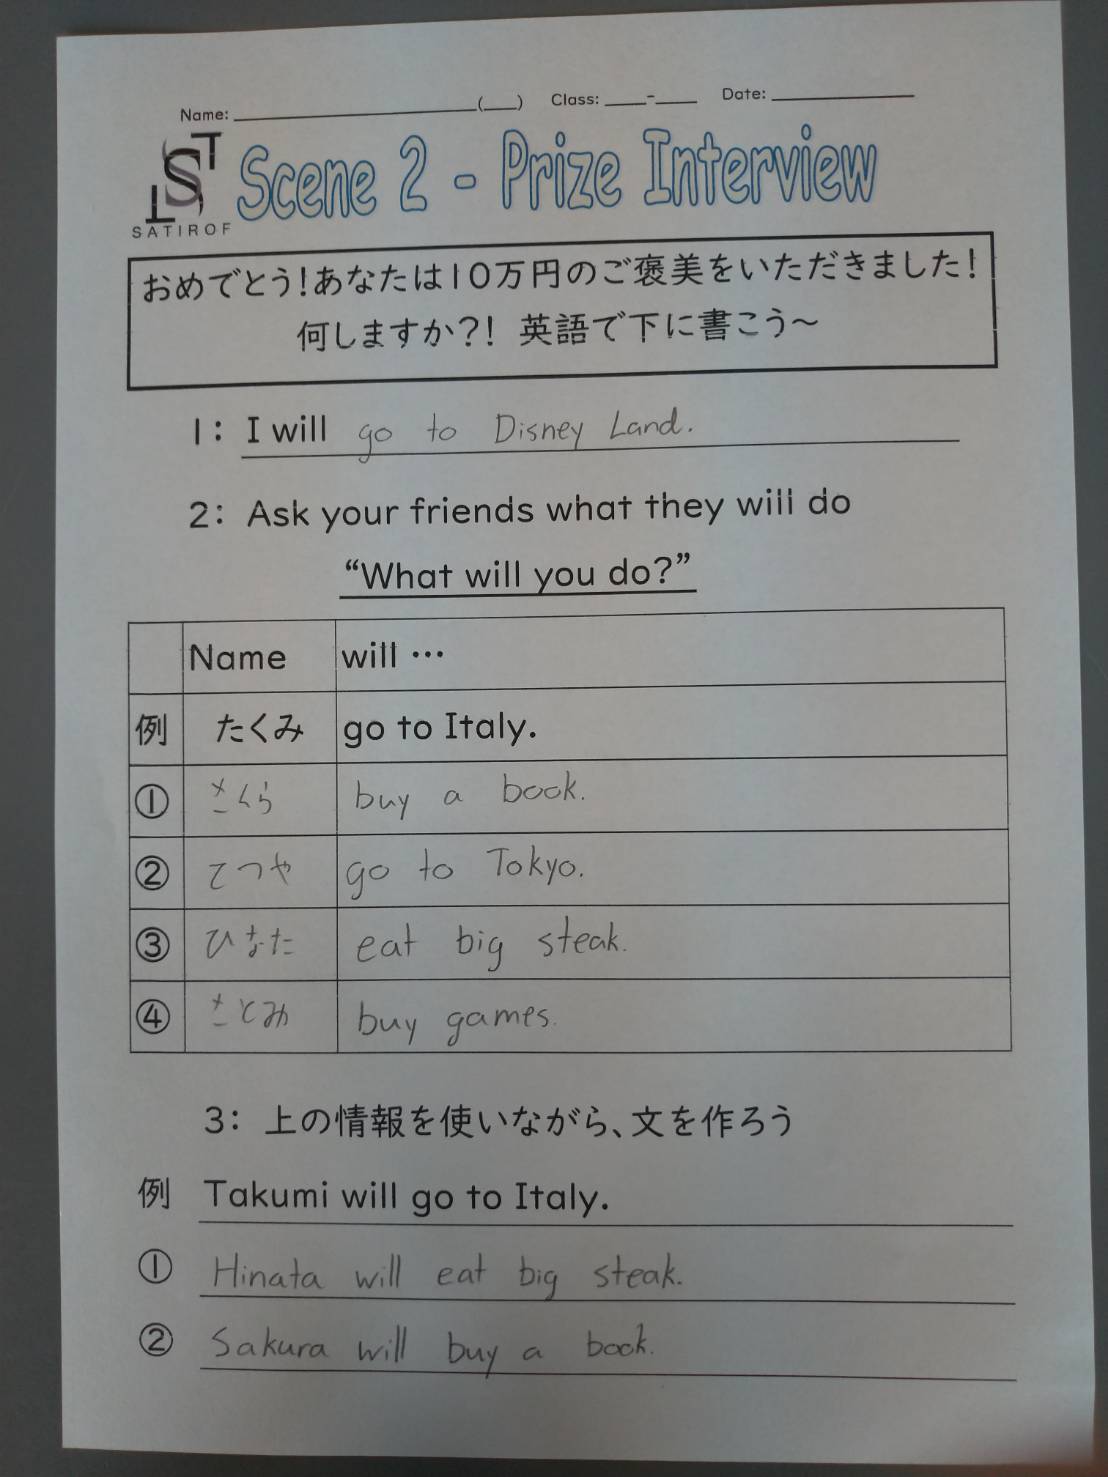 Name: ____________(___) Class: ____-____ Date: ____________
ST
SATIROF
Scene 2 - Prize Interview
おめでとう!あなたは10万円のご褒美をいただきました!
何しますか?! 英語で下に書こう～
1: I will go to Disney Land.
2: Ask your friends what they will do
“What will you do?”
Name will …
例 たくみ go to Italy.
① さくら buy a book.
② てつや go to Tokyo.
③ ひなた eat big steak.
④ さとみ buy games.
3: 上の情報を使いながら、文を作ろう
例 Takumi will go to Italy.
① Hinata will eat big steak.
② Sakura will buy a book.